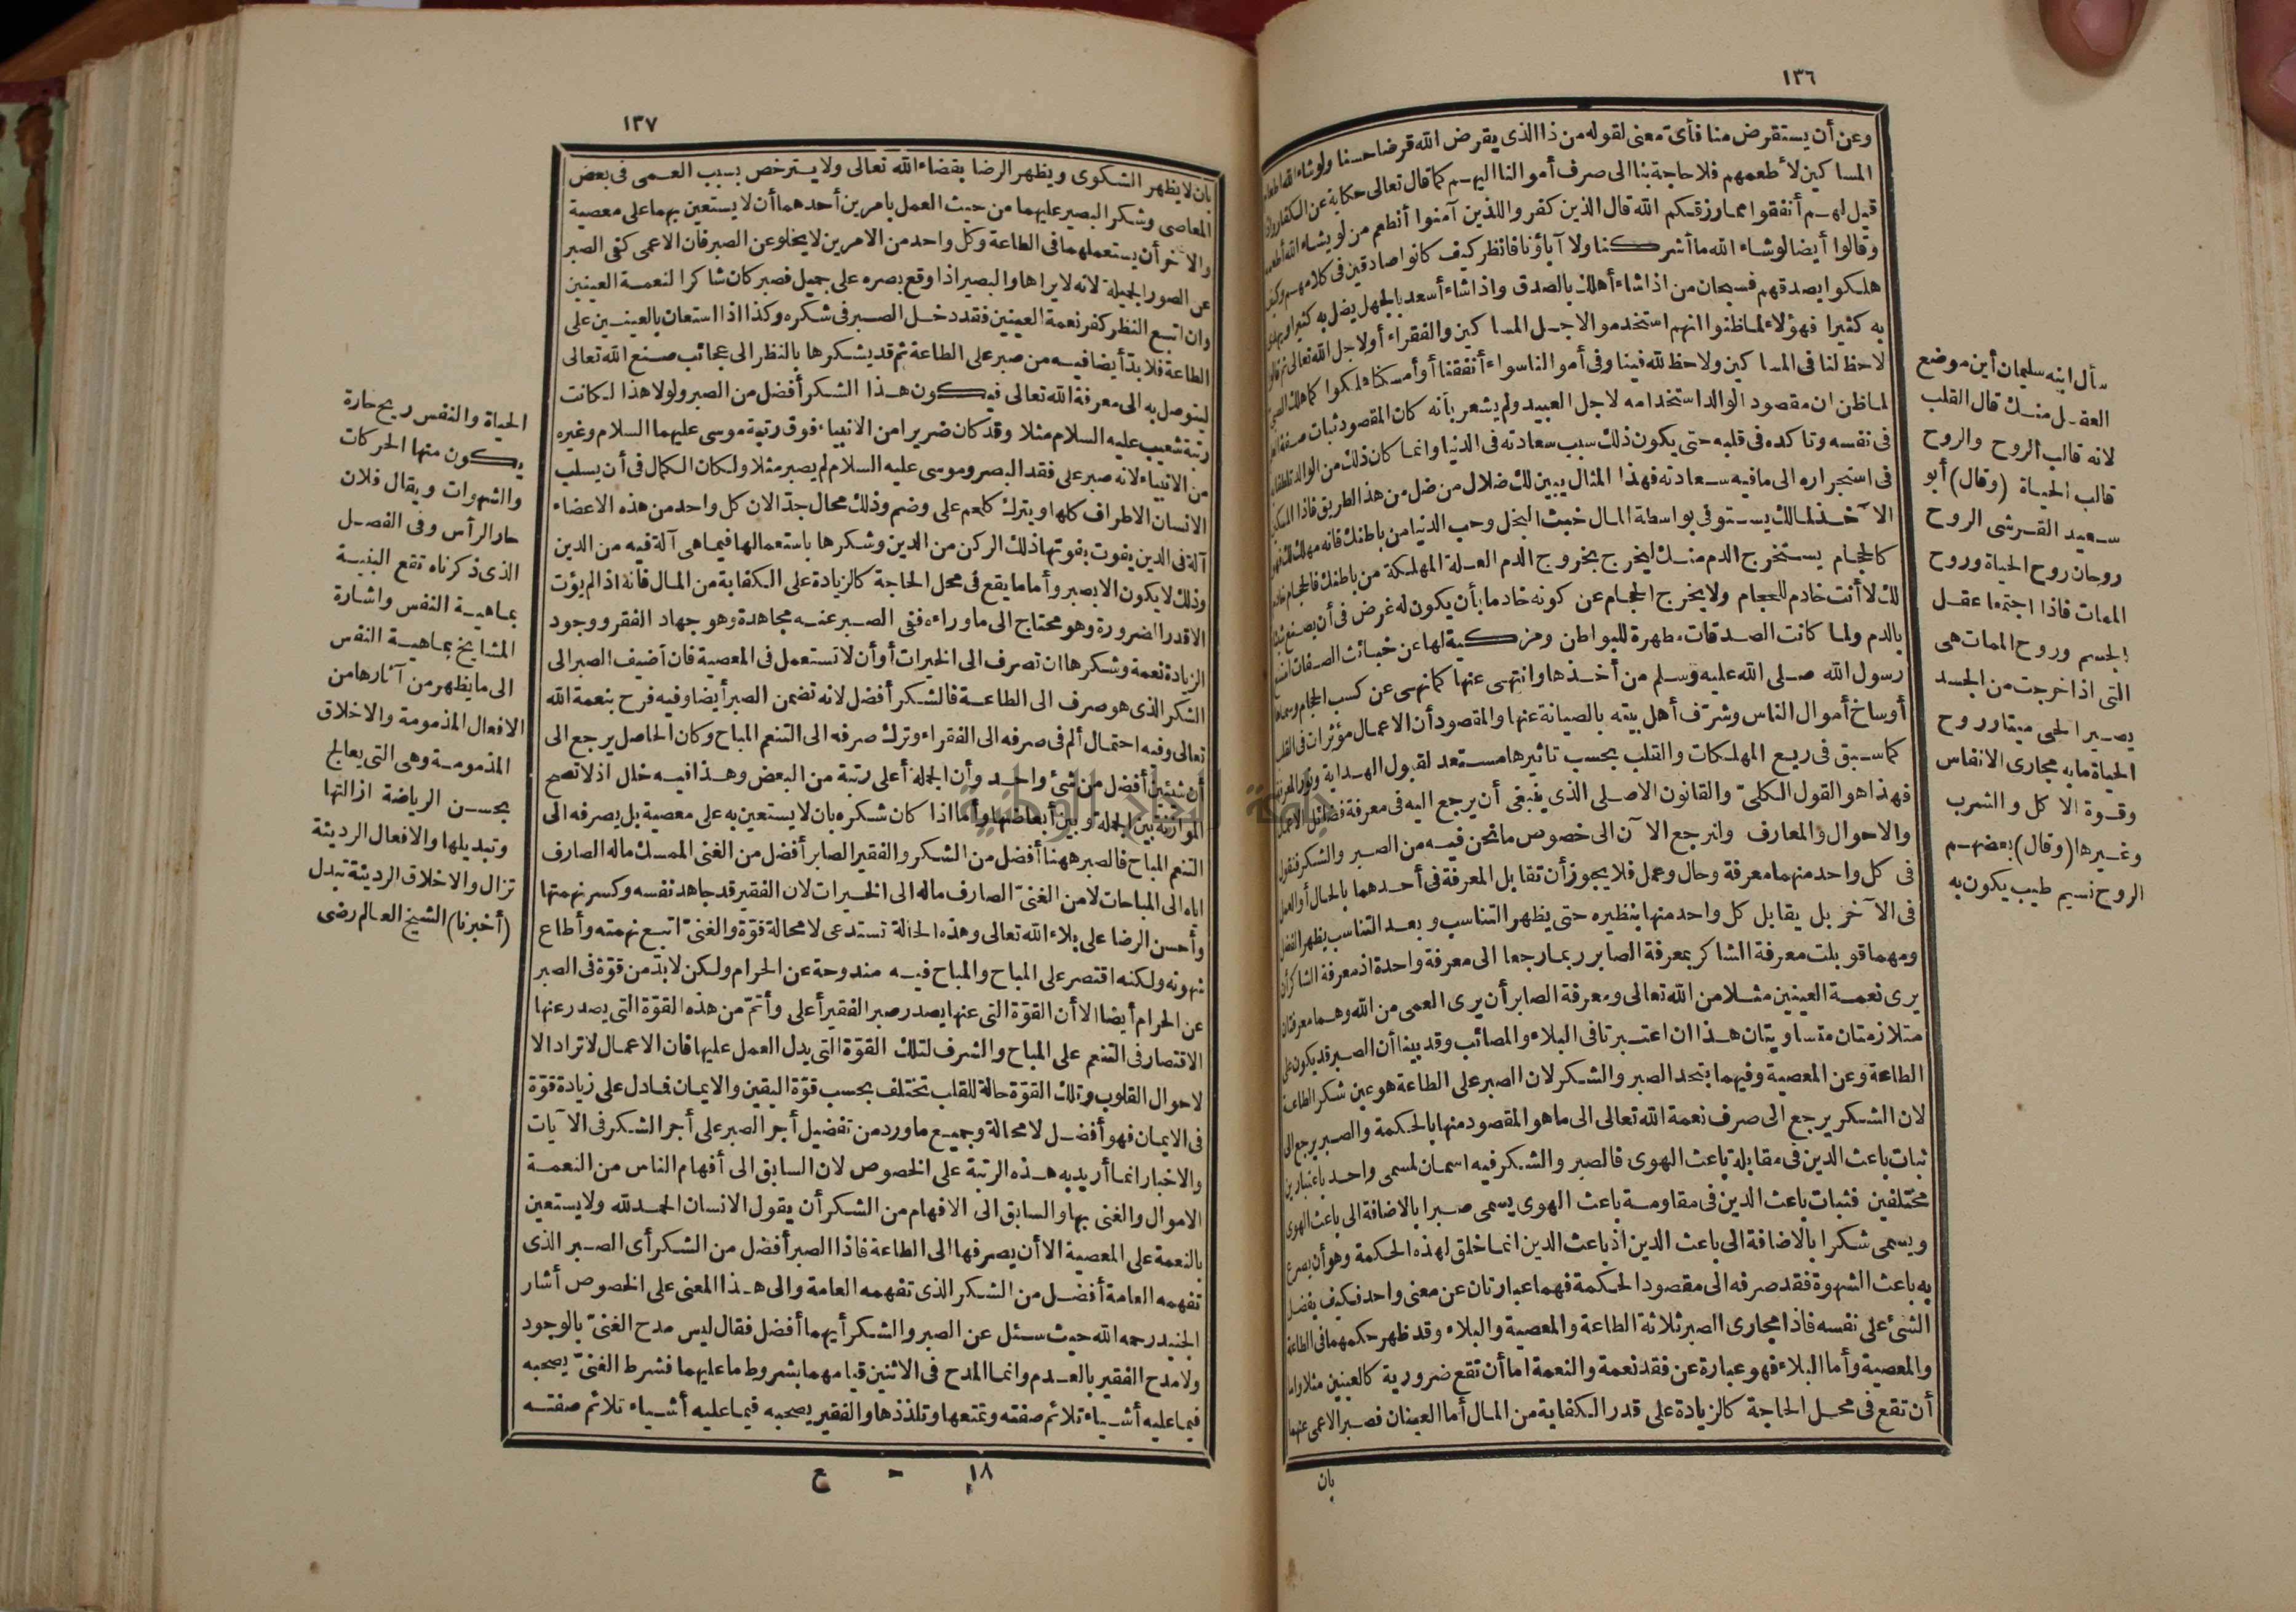 ١٣٦
وعن أن يستقرض منا فأى معنى لقوله من ذا الذى يقرض الله قرضا حسنا ولو شاء الله اطعام
المساكين لأطعمهم فلا حاجة بنا الى صرف أموالنا اليهم كما قال تعالى حكاية عن الكفار واذا
قيل لهم أنفقوا مما رزقكم الله قال الذين كفروا للذين آمنوا أنطعم من لو يشاء الله أطعمه
وقالوا أيضا لو شاء الله ما أشركنا ولا آباؤنا فانظر كيف كانوا صادقين فى كلامهم وكيف
هلكوا بصدقهم فسبحان من اذا شاء أهلك بالصدق واذا شاء أسعد بالجهل يضل به كثيرا ويهدى
به كثيرا فهؤلاء لما ظنوا انهم استخدموا لاجل المساكين والفقراء أو لاجل الله تعالى ثم قالوا
لا حظ لنا فى المساكين ولا حظ لله فينا وفى أموالنا سواء أنفقنا أو أمسكنا هلكوا كما هلك الصبى
لما ظن ان مقصود الوالد استخدامه لاجل العبيد ولم يشعر بأنه كان المقصود ثبات صفة العلم
فى نفسه وتاكده فى قلبه حتى يكون ذلك سبب سعادته فى الدنيا وانما كان ذلك من الوالد تلطفا به
فى استجراره الى ما فيه سعادته فهذا المثال يبين لك ضلال من ضل من هذا الطريق فاذا المسكين
الآخذ لمالك يستوفى بواسطة المال خبث البخل وحب الدنيا من باطنك فانه مهلك لك فهو
كالحجام يستخرج الدم منك ليخرج بخروج الدم العلة المهلكة من باطنك فالحجام خادم
لك لا أنت خادم للحجام ولا يخرج الحجام عن كونه خادما بأن يكون له غرض فى أن يصنع شيأ
بالدم ولما كانت الصدقات مطهرة للبواطن ومزكية لها عن خبائث الصفات امتنع
رسول الله صلى الله عليه وسلم من أخذها وانتهى عنها كما نهى عن كسب الحجام وسماها
أوساخ أموال الناس وشرّف أهل بيته بالصيانة عنها والمقصود أن الاعمال مؤثرات فى القلب
كما سبق فى ربع المهلكات والقلب بحسب تاثيرها مستعد لقبول الهداية ونور المعرفة
فهذا هو القول الكلىّ والقانون الاصلى الذى ينبغى أن يرجع اليه فى معرفة فضائل الاعمال
والاحوال والمعارف ولنرجع الآن الى خصوص ما نحن فيه من الصبر والشكر فنقول
فى كل واحد منهما معرفة وحال وعمل فلا يجوز أن تقابل المعرفة فى أحدهما بالحال أو العمل
فى الآخر بل يقابل كل واحد منها بنظيره حتى يظهر التناسب وبعد التناسب يظهر الفضل
ومهما قوبلت معرفة الشاكر بمعرفة الصابر ربما رجعا الى معرفة واحدة اذ معرفة الشاكر أن
يرى نعمة العينين مثلا من الله تعالى ومعرفة الصابر أن يرى العمى من الله وهما معرفتان
متلازمتان متساويتان هذا ان اعتبرتا فى البلاء والمصائب وقد بينا أن الصبر قد يكون على
الطاعة وعن المعصية وفيهما يتحد الصبر والشكر لان الصبر على الطاعة هو عين شكر الطاعة
لان الشكر يرجع الى صرف نعمة الله تعالى الى ما هو المقصود منها بالحكمة والصبر يرجع الى
ثبات باعث الدين فى مقابلة باعث الهوى فالصبر والشكر فيه اسمان لمسمى واحد باعتبارين
مختلفين فثبات باعث الدين فى مقاومة باعث الهوى يسمى صبرا بالاضافة الى باعث الهوى
ويسمى شكرا بالاضافة الى باعث الدين اذ باعث الدين انما خلق لهذه الحكمة وهو أن يصرع
به باعث الشهوة فقد صرفه الى مقصود الحكمة فهما عبارتان عن معنى واحد فكيف يفضل
الشئ على نفسه فاذا مجارى الصبر ثلاثة الطاعة والمعصية والبلاء وقد ظهر حكمهما فى الطاعة
والمعصية وأما البلاء فهو عبارة عن فقد نعمة والنعمة اما أن تقع ضرورية كالعينين مثلا واما
أن تقع فى محل الحاجة كالزيادة على قدر الكفاية من المال أما العينان فصبر الاعمى عنهما
بان
سأل ابنه سليمان أين موضع
العقل منك قال القلب
لانه قالب الروح والروح
قالب الحياة (وقال) أبو
سعيد القرشى الروح
روحان روح الحياة وروح
الممات فاذا اجتمعا عقل
الجسم وروح الممات هى
التى اذا خرجت من الجسد
يصير الحى ميتا وروح
الحياة ما به مجارى الانفاس
وقوة الاكل والشرب
وغيرها (وقال) بعضهم
الروح نسيم طيب يكون به
١٣٧
بان لا يظهر الشكوى ويظهر الرضا بقضاء الله تعالى ولا يسترخص بسبب العمى فى بعض
المعاصى وشكر البصير عليهما من حيث العمل بامرين أحدهما أن لا يستعين بهما على معصية
والآخر أن يستعملهما فى الطاعة وكل واحد من الامرين لا يخلو عن الصبر فان الاعمى كفى الصبر
عن الصور الجميلة لانه لا يراها والبصير اذا وقع بصره على جميل فصبر كان شاكرا لنعمة العينين
وان اتبع النظر كفر نعمة العينين فقد دخل الصبر فى شكره وكذا اذا استعان بالعينين على
الطاعة فلا بدّ أيضا فيه من صبر على الطاعة ثم قد يشكرها بالنظر الى عجائب صنع الله تعالى
ليتوصل به الى معرفة الله تعالى فيكون هذا الشكر أفضل من الصبر ولولا هذا لكانت
رتبة شعيب عليه السلام مثلا وقد كان ضريرا من الانبياء فوق رتبة موسى عليهما السلام وغيره
من الانبياء لانه صبر على فقد البصر وموسى عليه السلام لم يصبر مثلا ولكان الكمال فى أن يسلب
الانسان الاطراف كلها ويترك كلحم على وضم وذلك محال جدّا لان كل واحد من هذه الاعضاء
آلة فى الدين يفوت بفوتها ذلك الركن من الدين وشكرها باستعمالها فيما هى آلة فيه من الدين
وذلك لا يكون الا بصبر وأما ما يقع فى محل الحاجة كالزيادة على الكفاية من المال فانه اذا لم يؤت
الا قدر الضرورة وهو محتاج الى ما وراءه ففى الصبر عنه مجاهدة وهو جهاد الفقر ووجود
الزيادة نعمة وشكرها ان تصرف الى الخيرات أو أن لا تستعمل فى المعصية فان أضيف الصبر الى
الشكر الذى هو صرف الى الطاعة فالشكر أفضل لانه تضمن الصبر أيضا وفيه فرح بنعمة الله
تعالى وفيه احتمال ألم فى صرفه الى الفقراء وترك صرفه الى التنعم المباح وكان الحاصل يرجع الى
أن شيئين أفضل من شئ واحد وأن الجملة أعلى رتبة من البعض وهذا فيه خلل اذ لا تصح
الموازنة بين الجملة وبين أبعاضها وأما اذا كان شكره بان لا يستعين به على معصية بل يصرفه الى
التنعم المباح فالصبر ههنا أفضل من الشكر والفقير الصابر أفضل من الغنى الممسك ماله الصارف
اياه الى المباحات لا من الغنىّ الصارف ماله الى الخيرات لان الفقير قد جاهد نفسه وكسر نهمتها
وأحسن الرضا على بلاء الله تعالى وهذه الحالة تستدعى لا محالة قوّة والغنىّ اتبع نهمته وأطاع
شهوته ولكنه اقتصر على المباح والمباح فيه مندوحة عن الحرام ولكن لا بدّ من قوّة فى الصبر
عن الحرام أيضا الا أن القوّة التى عنها يصدر صبر الفقير أعلى وأتمّ من هذه القوّة التى يصدر عنها
الاقتصار فى التنعم على المباح والشرف لتلك القوّة التى يدل العمل عليها فان الاعمال لا تراد الا
لاحوال القلوب وتلك القوّة حالة للقلب تختلف بحسب قوّة اليقين والايمان فما دل على زيادة قوّة
فى الايمان فهو أفضل لا محالة وجميع ما ورد من تفضيل أجر الصبر على أجر الشكر فى الآيات
والاخبار انما أريد به هذه الرتبة على الخصوص لان السابق الى أفهام الناس من النعمة
الاموال والغنى بها والسابق الى الافهام من الشكر أن يقول الانسان الحمد لله ولا يستعين
بالنعمة على المعصية الا أن يصرفها الى الطاعة فاذا الصبر أفضل من الشكر أى الصبر الذى
تفهمه العامة أفضل من الشكر الذى تفهمه العامة والى هذا المعنى على الخصوص أشار
الجنيد رحمه الله حيث سئل عن الصبر والشكر أيهما أفضل فقال ليس مدح الغنىّ بالوجود
ولا مدح الفقير بالعدم وانما المدح فى الاثنين قيامهما بشروط ما عليهما فشرط الغنىّ يصحبه
فيما عليه أشياء تلائم صفته وتمتعها وتلذذها والفقير يصحبه فيما عليه أشياء تلائم صفته
١٨ - ع
الحياة والنفس ريح حارة
يكون منها الحركات
والشهوات ويقال فلان
حار الرأس وفى الفصل
الذى ذكرناه تقع البنية
بماهية النفس واشارة
المشايخ بماهية النفس
الى ما يظهر من آثارها من
الافعال المذمومة والاخلاق
المذمومة وهى التى يعالج
بحسن الرياضة ازالتها
وتبديلها والافعال الرديئة
تزال والاخلاق الرديئة تبدل
(أخبرنا) الشيخ العالم رضى